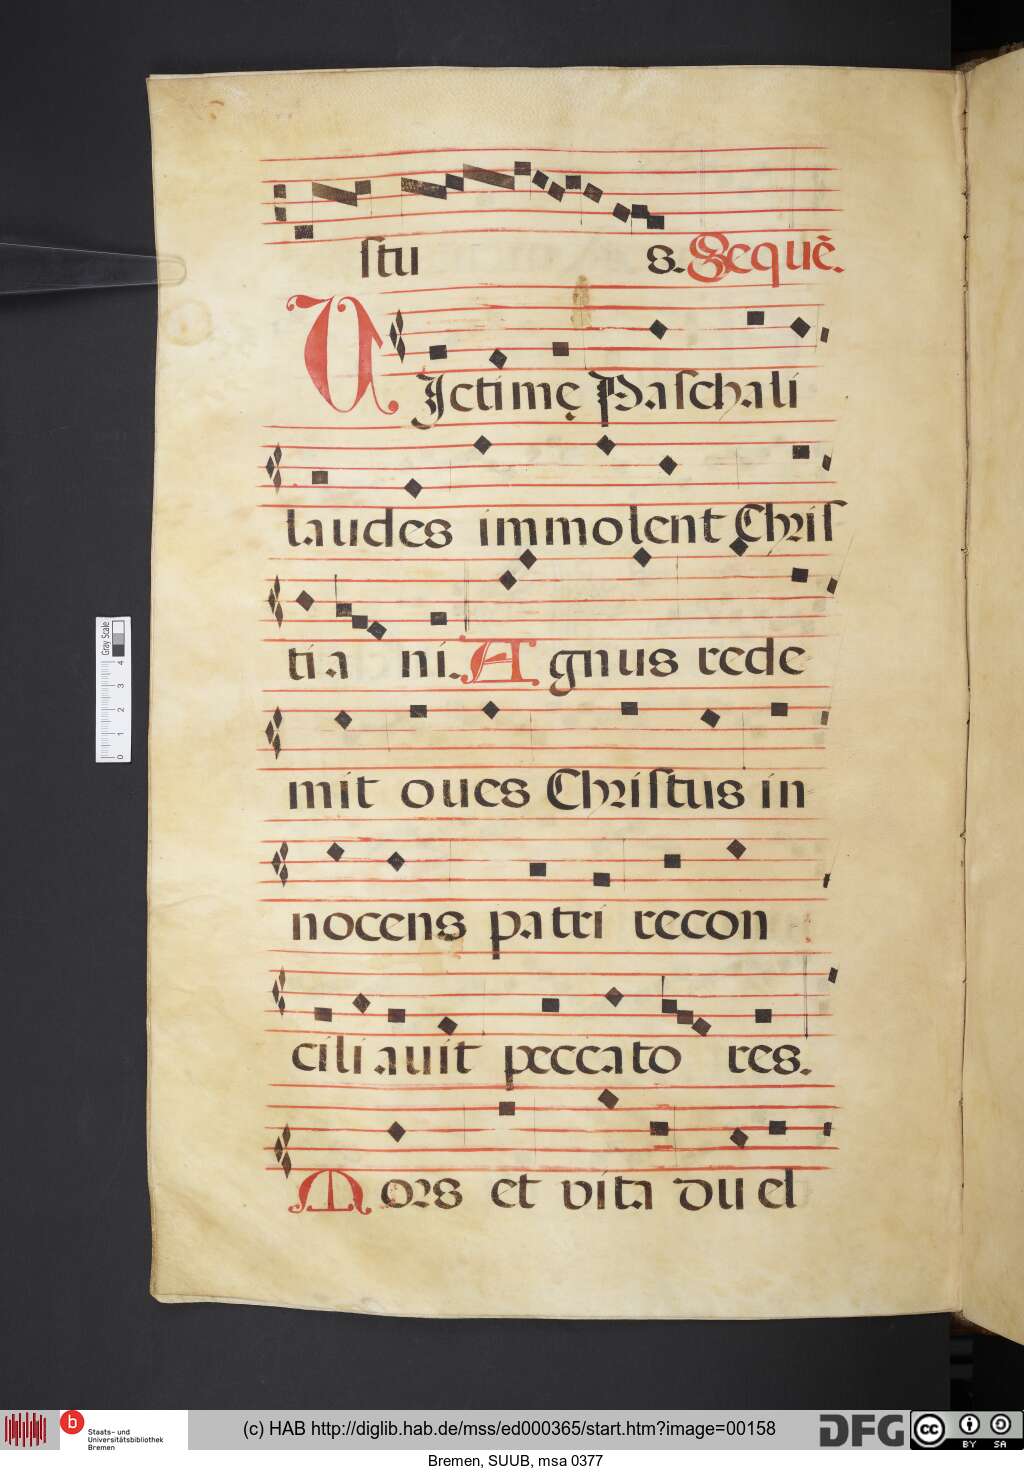 ſtu s. Sequē.
VIctimę Paſchali
laudes immolent Chriſ
tia ni. Agnus rede
mit oues Chriſtus in
nocens patri recon
ciliauit peccato res.
Mors et vita duel
Gray Scale
0 1 2 3 4
b
Staats- und
Universitätsbibliothek
Bremen
(c) HAB http://diglib.hab.de/mss/ed000365/start.htm?image=00158
DFG
cc BY SA
Bremen, SUUB, msa 0377